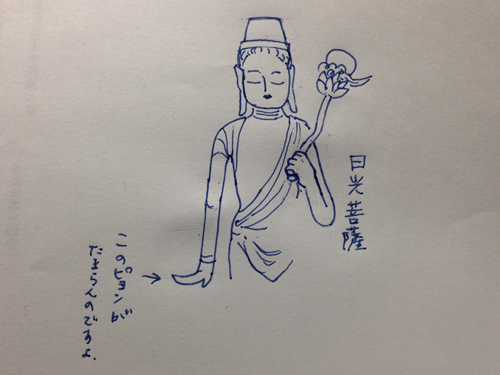 日光菩薩
このピョンが
たまらんのですよ.